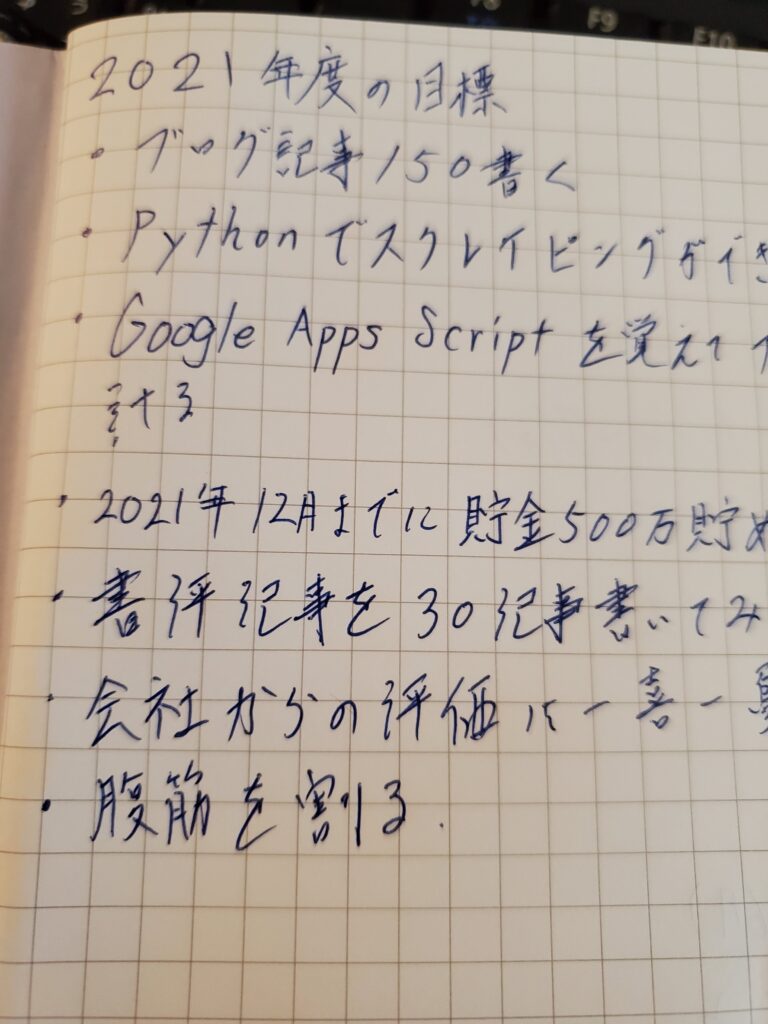 2021年度の目標
・ブログ記事150書く
・Pythonでスクレイピングができ
・Google Apps Scriptを覚えて
計る
・2021年12月までに貯金500万貯め
・書評記事を30記事書いてみ
・会社からの評価に一喜一
・腹筋を割る.
F9
F10